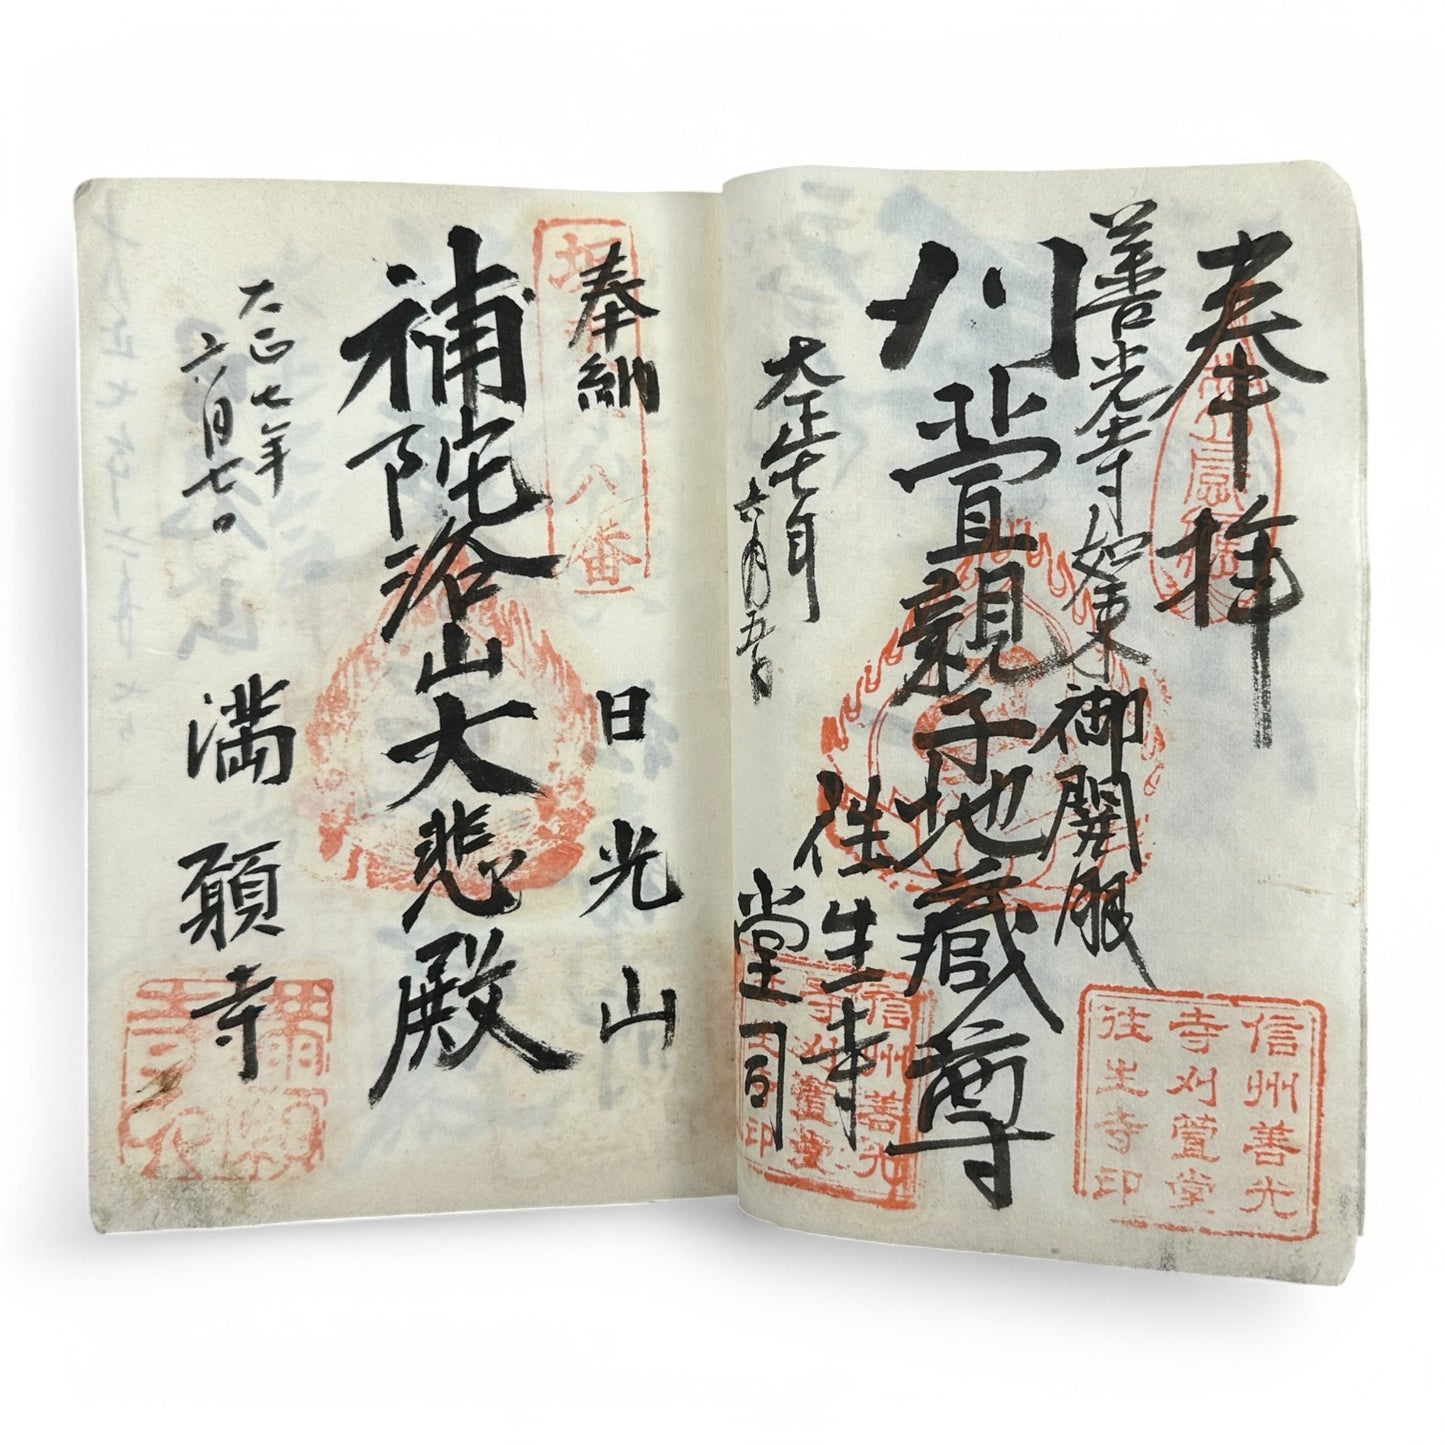 奉拝
善光寺如来御開帳
刈萱親子地蔵尊
大正七年
六月五日
往生寺
堂司
信州善光
寺刈萱堂
往生寺印
信州善光
寺刈萱堂
往生寺印
奉納
八番
日光山
補陀洛山大悲殿
大正七年
六月七日
満願寺
満願